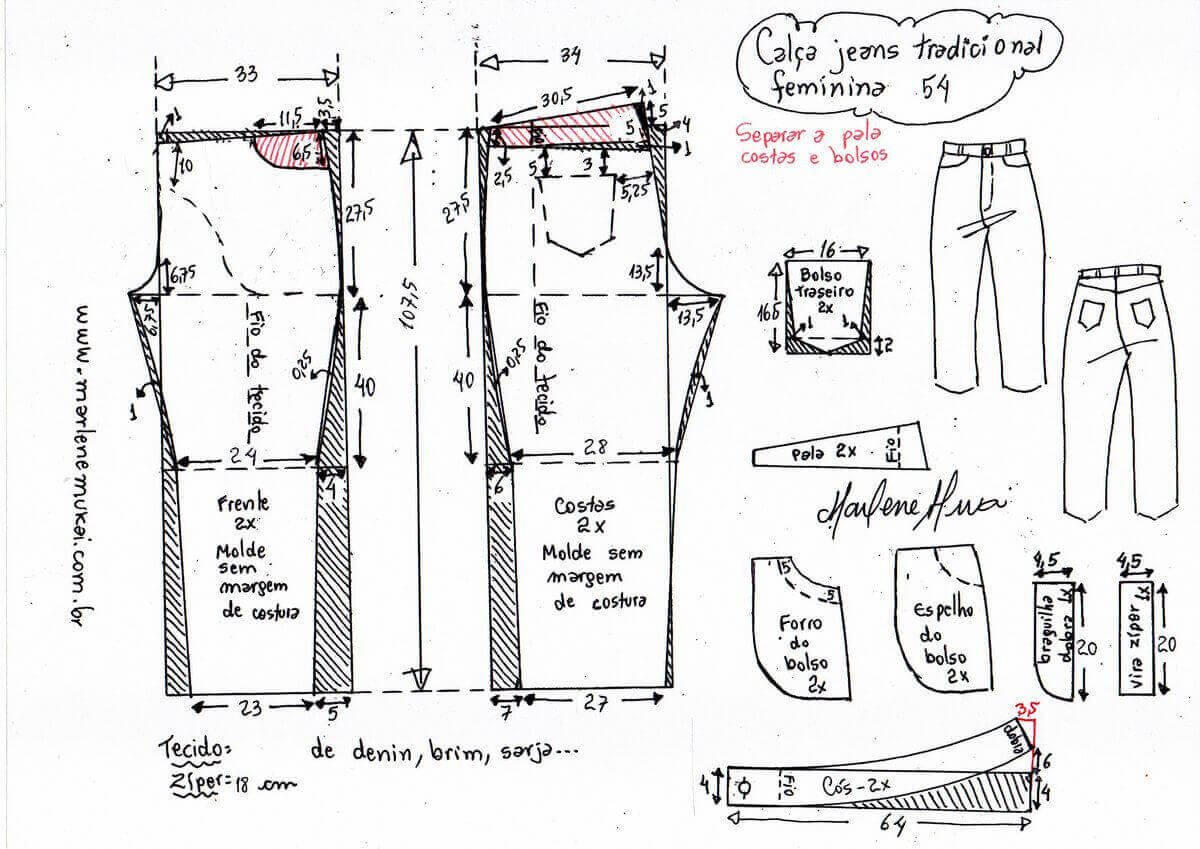 Calça jeans tradicional
feminina 54
Separar a pala
costas e bolsos
33
1
11,5
3,5
6,5
10
27,5
6,75
6,75
Fio do tecido
0,25
40
1
24
4
Frente
2x
Molde sem
margem
de costura
23
5
107,5
34
30,5
1
5
5
4
1
2,5
5
3
5,25
27,5
13,5
13,5
Fio do tecido
0,25
40
1
28
6
Costas
2x
Molde sem
margem
de costura
7
27
www.marlenemukai.com.br
Tecido= de denin, brim, sarja...
Zíper=18 cm
16
Bolso
traseiro
2x
16,5
1
1
2
Pala 2x
Fio
5
5
Forro
do
bolso
2x
Espelho
do
bolso
2x
4,5
braguilha
dobra
1x
20
4,5
vira zíper 1x
20
3,5
dobra
6
4
Fio
Cós-2x
4
64